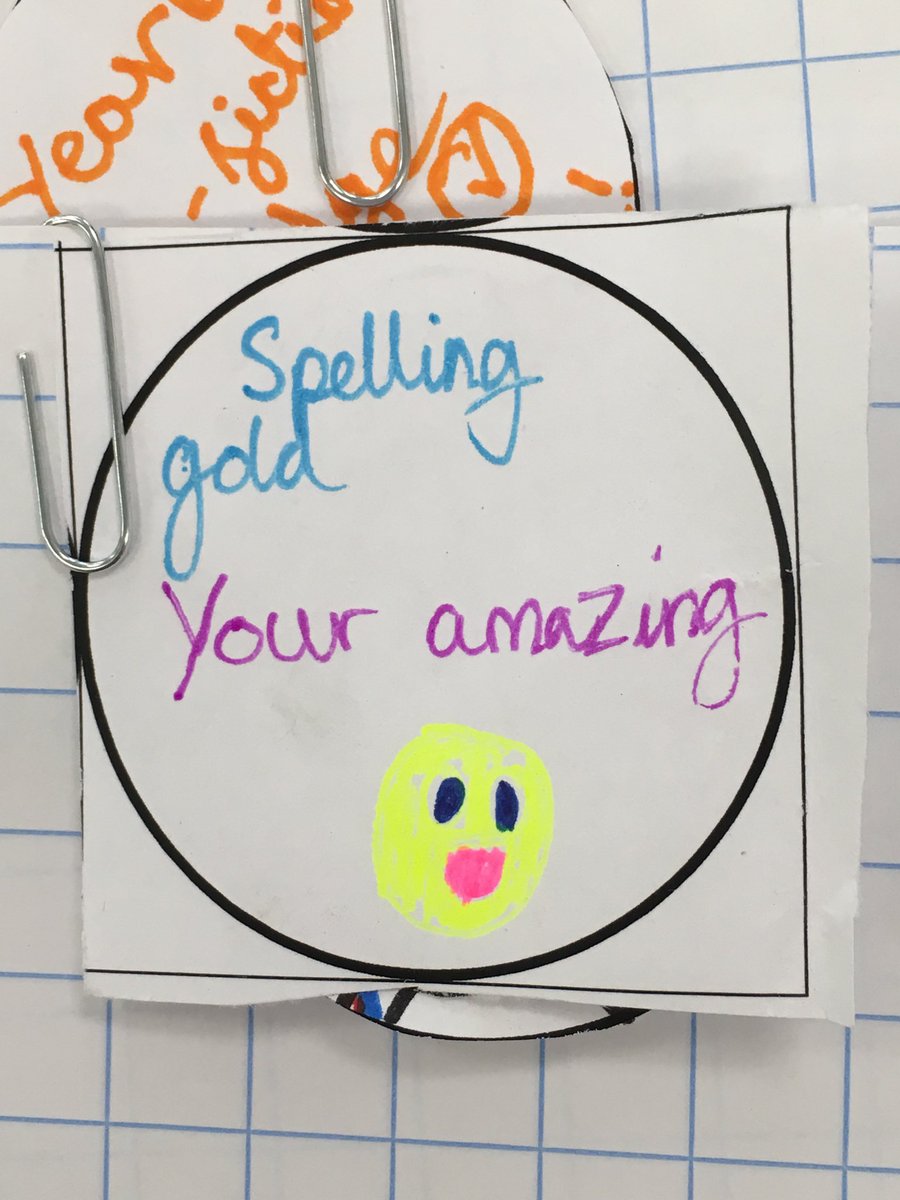 Year
Spelling
gold
Your amazing